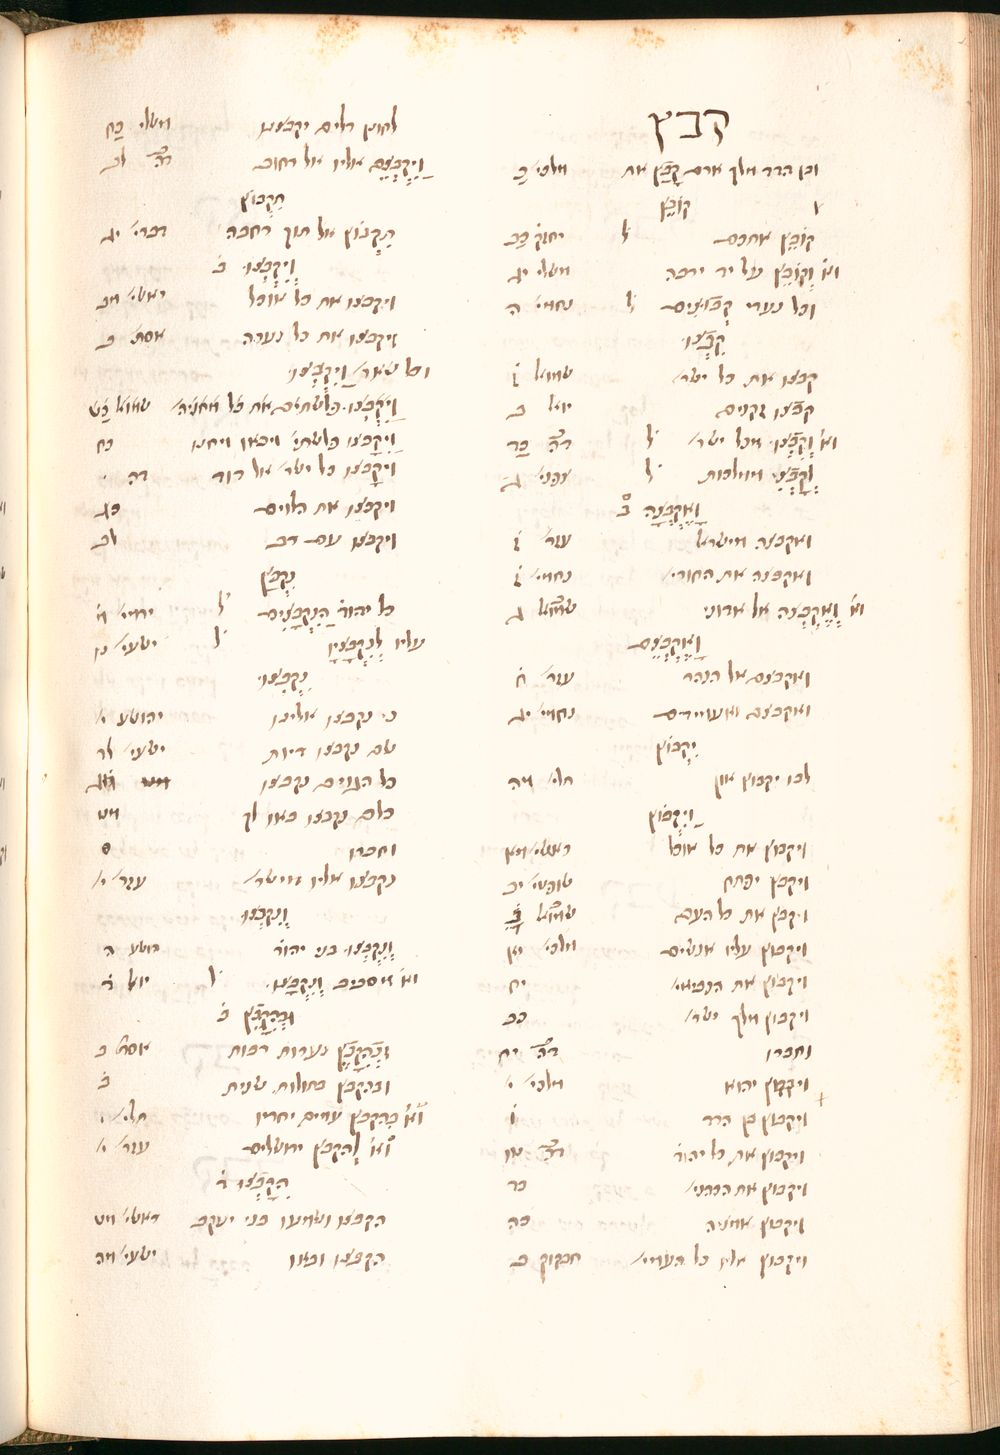 קבץ
ובן הדד מלך ארם קָבַץ את מלכי׳ כ
קוֹבֵץ
קוֹבֵץ אתכם ל יחזק׳ כב
וא׳ וְקוֹבֵץ על יד ירבה משלי יג
וכל נערי קְבוּצִים ל נחמי׳ ה
קִבְצוּ
קבצו את כל ישר׳ שמוא׳ ז
קבצו זקנים יואל ב
וא׳ וְקִבְצוּ מכל ישר׳ ל דה׳ כד
ממלכות ל צפני׳ ג
וָאֶקְבְּצָה ב
ואקבצה מישראל עזר׳ ז
ואקבצה את החורי׳ נחמי׳ ז
וא׳ וְאֶקְבְּצָה אל אדוני שמואל ג
וָאֶקְבְּצֵם
ואקבצם אל הנהר עזר׳ ח
ואקבצם ואעמידם נחמי׳ יג
יִקְבּוֹץ
לבו יקבוץ און תלי׳ מה
וַיִקְבּוֹץ
ויקבוץ את כל אוכל ראשי׳ מא
ויקבץ יפתח שופטי׳ יב
ויקבץ את כל העם שמואל ב
ויקבוץ עליו אנשים מלכי׳ יא
ויקבוץ את הנביאי׳ יח
ויקבוץ מלך ישר׳ כב
וחברו דה׳ יח
ויקבוץ יהוא מלכי׳ י
ויקבוץ בן הדד ו
ויקבוץ את כל יהוד׳ דה׳ טו
ויקבוץ את הכהני׳ כד
ויקבוץ אמציה כה
ויקבוץ אליו כל העמי׳ חבקוק ב
לחונן דלים יקבצנו משלי כח
וַיִקְבְּצֵם אליו אל רחוב דה׳ לב
תִקְבּוֹץ
תִקְבּוֹץ אל תוך רחבה דברי׳ יג
וְיִקְבְּצוּ ב
ויקבצו את כל אוכל ראשי׳ מב
ויקבצו את כל נערה אסת׳ ב
וכל שאר׳ וַיִקְבְּצוּ
וַיִקְבְּצוּ פלשתים את כל מחניה׳ שמואל כש
וַיִקָבְצוּ פלשתי׳ ויבאו ויחנו כח
ויקבצו כל ישר׳ אל דוד דה׳
ויקבצו את הלוים כג
ויקבצו עם רב לב
נִקְבַּץ
כל יהוד׳ הַנִקְבָּצִים ל ירמי׳ מ
עליו לְנִקְבָּצָיו ל ישעי׳ נו
נִקְבְּצוּ
כי נקבצו אלינו יהושע י׳
שם נקבצו דיות ישעי׳ לד
כל הגוים נקבצו מג
כלם נקבצו באו לך מט
וחברו ס
נקבצו אליו מישר׳ עזר׳ י׳
וְנִקְבְּצוּ
וְנִקְבְּצוּ בני יהוד׳ הושע ה
וא׳ מסביב וְנִקְבָּצוּ ל יואל ד
וּבְהִקָבֵץ ב
וּבְהִקָבֵץ נערות רבות אסת׳ ב
ובהקבץ בתולות שנית ב
וא׳ בְהִקָבֵץ עמים יחדיו תלי׳
וא׳ להקבץ ירושלים עזר׳ י׳
הִקָבְצוּ ד
הקבצו ושמעו בני יעקב ראשי׳ מט
הקבצו ובאו ישעי׳ מה